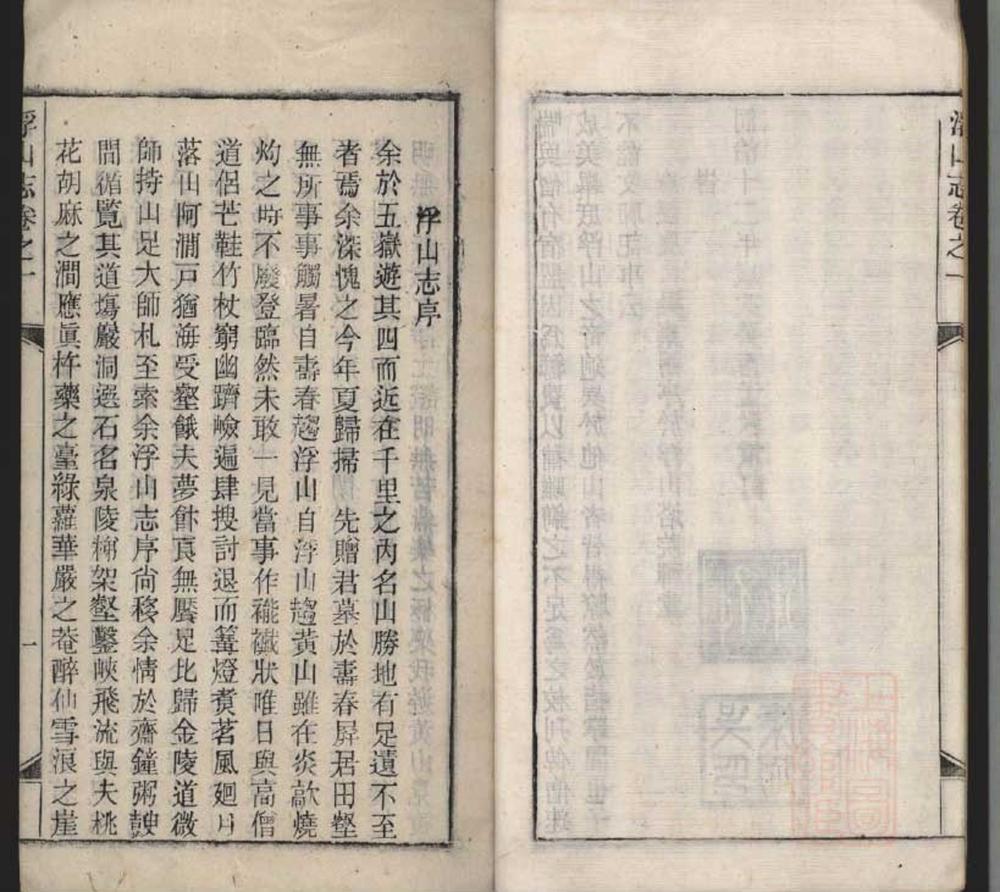 浮山志卷之一
浮山志序
余於五嶽遊其四而近在千里之內名山勝地有足遺不至
者焉余深愧之今年夏歸掃 先贈君墓於壽春屏居田壑
無所事事觸暑自壽春趨浮山自浮山趨黃山雖在炎歊燒
灼之時不廢登臨然未敢一見當事作褦襶狀唯日與高僧
道侶芒鞋竹杖窮幽躋嶮遍肆搜討退而篝燈煑茗風廻月
落山阿澗戶猶海受壑餓夫夢餅頁無饜足比歸金陵道微
師持山足大師札至索余浮山志序尙移余情於齋鐘粥皷
間循覽其道塲嚴洞選石名泉陵櫛架壑鑿峽飛流與夫桃
花胡麻之澗應眞杵藥之臺綠蘿華嚴之菴醉仙雪浪之崖
浮山志卷之一
一